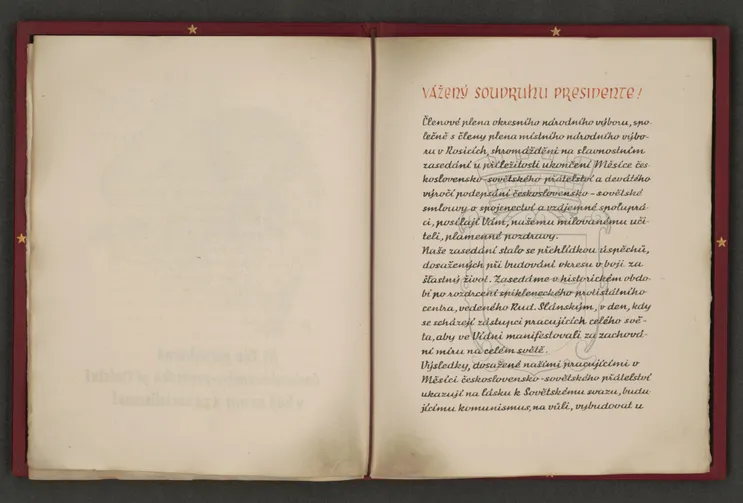 VÁŽENÝ SOUDRUHU PRESIDENTE!
Členové plena okresního národního výboru, spo-
lečně s členy plena místního národního výbo-
ru v Rosicích, shromážděni na slavnostním
zasedání u příležitosti ukončení Měsíce čes-
koslovensko-sovětského přátelství a devátého
výročí podepsání československo-sovětské
smlouvy o spojenectví a vzájemné spoluprá-
ci, posílají Vám, našemu milovanému uči-
teli, plamenné pozdravy.
Naše zasedání stalo se přehlídkou úspěchů,
dosažených při budování okresu v boji za
šťastný život. Zasedáme v historickém obdo-
bí po rozdrcení spikleneckého protistátního
centra, vedeného Rud. Slánským, v den, kdy
se scházejí zástupci pracujících celého svě-
ta, aby ve Vídni manifestovali za zachová-
ní míru na celém světě.
Výsledky, dosažené našimi pracujícími v
Měsíci československo-sovětského přátelství
ukazují na lásku k Sovětskému svazu, budu-
jícímu komunismus, na vůli, vybudovat u